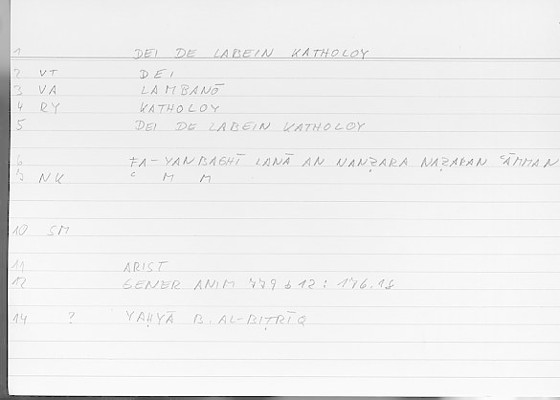 1 DEI DE LABEIN KATHOLOY
2 VT DEI
3 VA LAMBANŌ
4 RY KATHOLOY
5 DEI DE LABEIN KATHOLOY
6 FA-YANBAGHĪ LANĀ AN NANẒARA NAẒARAN ʿĀMMAN
NK C M M
10 SM
11 ARIST
12 GENER ANIM 779 b 12 : 176.18
14 ? YAḤYĀ B. AL-BIṬRĪQ